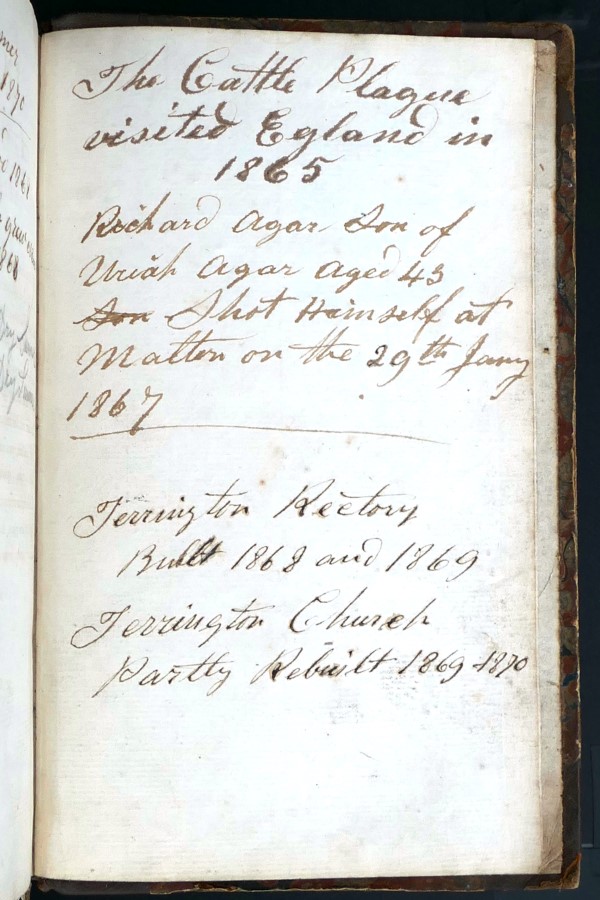 The Cattle Plague
visited Egland in
1865
Richard Agar Son of
Uriah Agar Aged 43
Son Shot Himself at
Malton on the 29th Jany
1867
Terrington Rectory
Built 1868 and 1869
Terrington Church
Partly Rebuilt 1869 1870